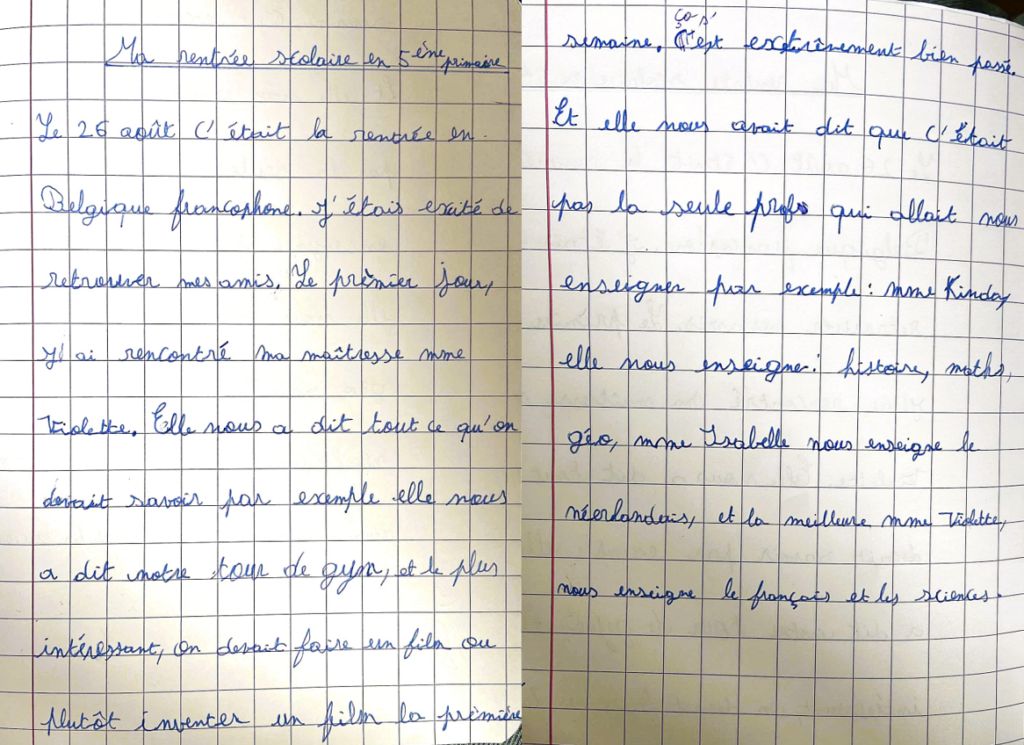 Ma rentrée scolaire en 5ème primaire
Le 26 août C'était la rentrée en
Belgique francophone. J'étais exité de
retrouver mes amis. Le prèmier jour,
J'ai rencontré ma maîtresse mme
Violette. Elle nous a dit tout ce qu'on
devait savoir par exemple elle nous
a dit notre tour de gym, et le plus
intéressant, on devait faire un film ou
plutôt inventer un film la prèmière
ça s'
semaine. C'est extrêmement bien passé.
Et elle nous avait dit que C'était
pas la seule profs qui allait nous
enseigner par exemple : mme Kinday
elle nous enseigne : histoire, maths,
géo, mme Isabelle nous enseigne le
néerlandais, et la meilleure mme Violette,
nous enseigne le français et les sciences.